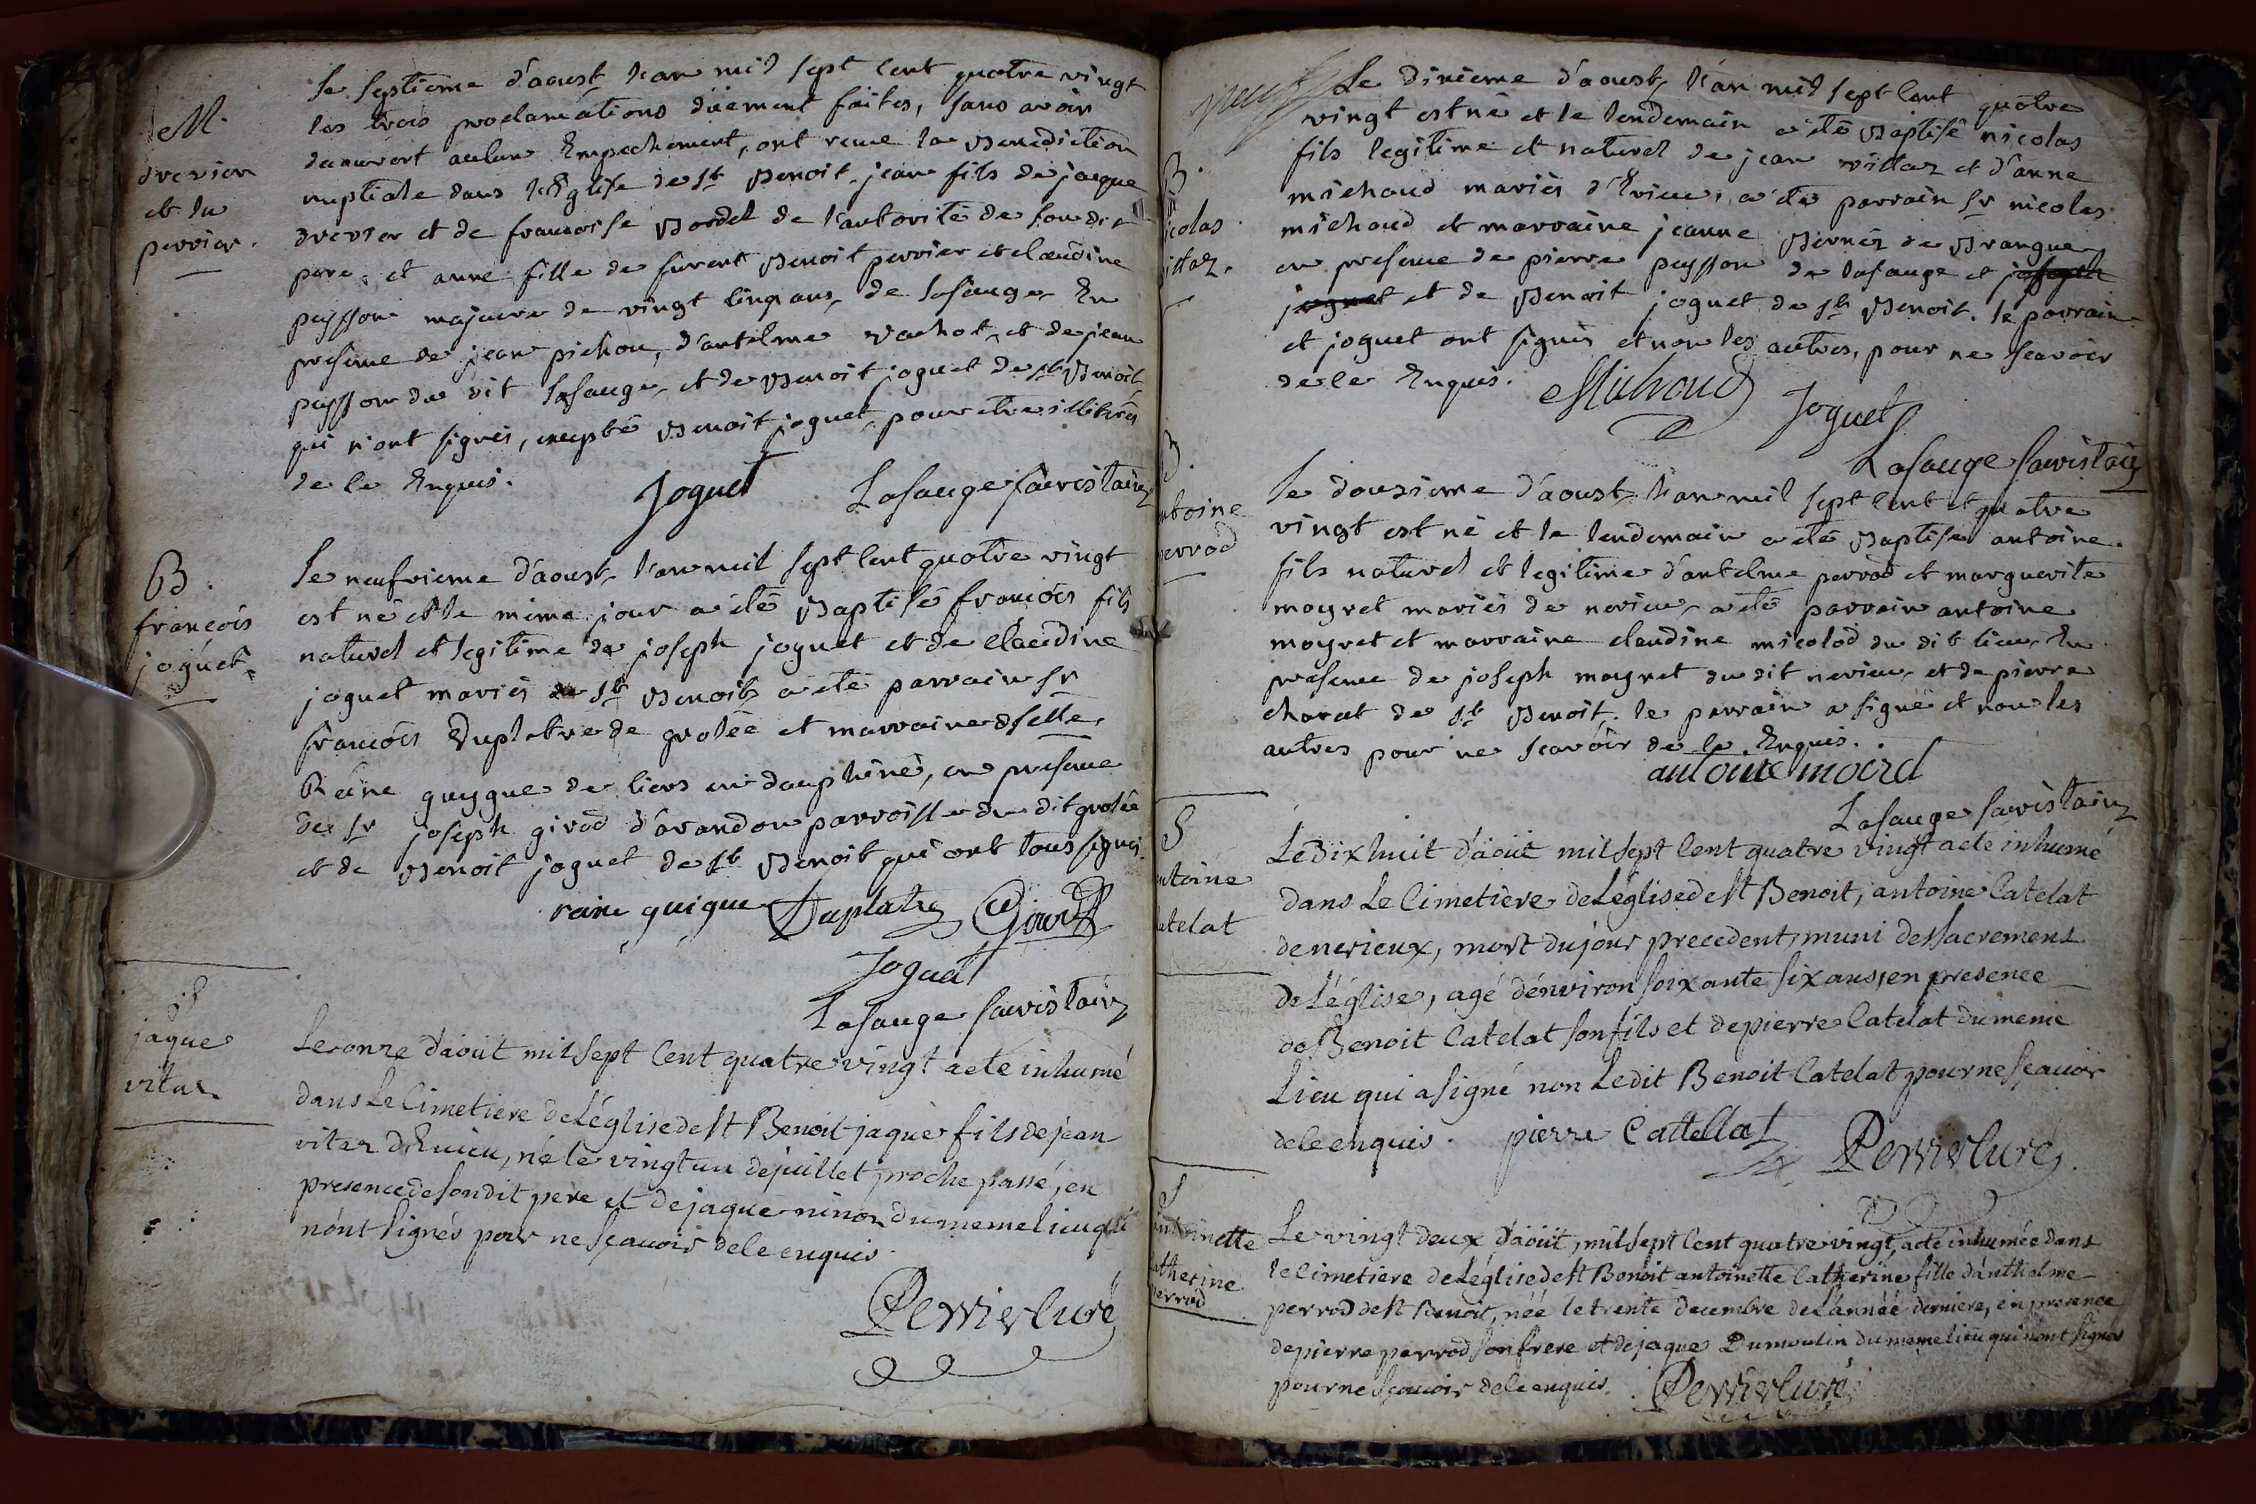 M.
drevion
et du
perrier.
Le septieme d'aoust l'an mil sept cent quatre vingt
les trois proclamations düement faites, sans avoir
decouvert aulun Empechement, ont reçue la Benediction
nuptiale dans l'Eglise de st Benoit, jean fils de jacque
drevion et de francoise Bordel de l'autorité de son dit
pere, et anne fille de furent Benoit perrier et claudine
peysson majeure de vingt cinq ans, de lasauge, En
presence de jean pichon, d'antelme vachot, et de jean
peysson du dit Lasauge, et de Benoit joguet de st Benoit
qui n'ont signés, excepté Benoit joguet, pour etre illiterés
de le Enquis.
Joguet Lasauge sacristain
B.
francois
joguet.
Le neufvieme d'aoust, l'an mil sept cent quatre vingt
est né et le mème jour a été Baptisé francois fils
naturel et legitime de joseph joguet et de claudine
joguet mariés de st Benoit, a été parrain sr
francois Duplatre de grolée et marraine dselle
Reine guygue de liers en dauphiné, en presence
de sr joseph girod d'arandon parroisse du dit grolée
et de Benoit joguet de st Benoit qui ont tous signés.
reine guigue Duplatre Girod
Joguet
Lasauge sacristain
S
jaque
vitaz
Le onze d'aoüt mil sept cent quatre vingt a eté inhumé
dans le Cimetiere de L'église de st Benoit jaque fils de jean
vitaz d'Evieu, né le vingt un de juillet proche passé, en
presence de son dit pere et de jaque ninon du meme lieu qui
n'ont signés pour ne sçavoir de le enquis.
Perrier Curé
B.
nicolas
vittaz.
Le dixieme d'aoust, l'an mil sept cent quatre
vingt est né et le lendemain a été Baptisé nicolas
fils legitime et naturel de jean vittaz et d'anne
michaud mariés d'Evieu, a été parrain sr nicolas
michaud et marraine jeanne Bernéz de Brangue,
en presence de pierre peysson de lasauge et joseph
joguet et de Benoit joguet de st Benoit. le parrain
et joguet ont signés et non les autres, pour ne scavoir
de le Enquis.
Michaud Joguet
Lasauge sacristain
B.
antoine
perrod
Le dousieme d'aoust, l'an mil sept cent et quatre
vingt est né et le lendemain a été Baptisé antoine
fils naturel et legitime d'antelme perrod et marguerite
moyret mariés de nerieu, a été parrain antoine
moyret et marraine claudine micolod du dit lieu, En
presence de joseph moyret du dit nerieu, et de pierre
charat de st Benoit. le parrain a signé et non les
autres pour ne scavoir de le Enquis.
antoine moerd
Lasauge sacristain
S
antoine
catelat
Le dix huit d'aoüt mil sept cent quatre vingt a eté inhumé
dans Le Cimetiere de L'église de st Benoit, antoine Catelat
de nerieux, mort du jour precedent, muni des sacremens
de L'église, agé d'environ soixante six ans, en presence
de Benoit Catelat son fils et de pierre Catelat du meme
Lieu qui a signé non Le dit Benoit Catelat pour ne sçavoir
de le enquis. pierre Cattellat Perrier Curé.
S
antoinette
catherine
perrod
Le vingt deux d'aoüt, mil sept cent quatre vingt, a eté inhumée dans
le Cimetiere de L'église de st Benoit antoinette Catherine fille d'anthelme
perrod de st Benoit, née le trente decembre de L'année derniere, en presence
de pierre perrod son frere et de jaque Dumoulin du meme lieu qui n'ont signés
pour ne sçavoir de le enquis. Perrier Curé